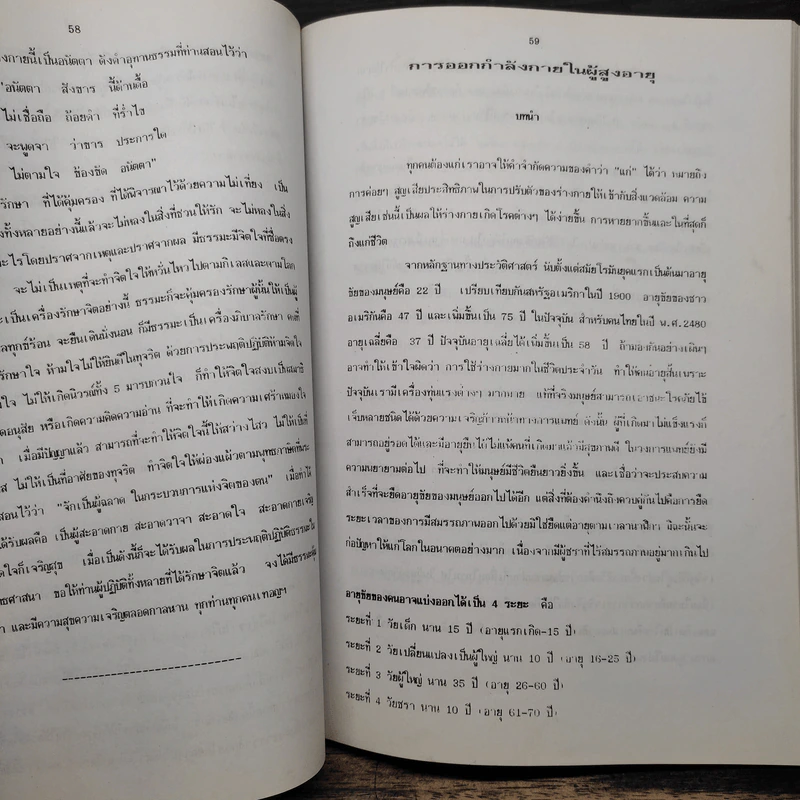 58
งกายนี้เป็นอนัตตา ดังคำอุทานธรรมที่ท่านสอนไว้ว่า
"อนัตตา สังขาร นี้ด้านดื้อ
ไม่เชื่อถือ ถ้อยคำ ที่ร่ำไข
จะพูดจา ว่าขาร ประการใด
ไม่ตามใจ ข้องขัด อนัตตา"
รักษา ที่ได้คุ้มครอง ที่ได้พิจารณาไว้ด้วยความไม่เที่ยง เป็น
งทั้งหลายอย่างนี้แล้วจะไม่หลงในสิ่งที่ชวนให้รัก จะไม่หลงในสิ่ง
ะไรโดยปราศจากเหตุและปราศจากผล มีธรรมะมีจิตใจที่ซื่อตรง
จะไม่เป็นเหตุที่จะทำจิตใจให้หวั่นไหวไปตามกิเลสและตามโลก
ะเป็นเครื่องรักษาจิตอย่างนี้ ธรรมะก็จะคุ้มครองรักษาผู้นั้นให้เป็นผู้
ลทุกข์ร้อน จะยืนเดินนั่งนอน ก็มีธรรมะเป็นเครื่องอภิบาลรักษา คงที่
รักษาใจ ห้ามใจไม่ให้ยินดีในทุจริต ด้วยการประพฤติปฏิบัติห้ามจิตใจ
ใจ ไม่ให้เกิดนิวรณ์ทั้ง 5 มารบกวนใจ ก็ทำให้จิตใจสงบเป็นสมาธิ
ดอนุสัย หรือเกิดความคิดความอ่าน ที่จะทำให้เกิดความเศร้าหมองใจ
า เมื่อมีปัญญาแล้ว สามารถที่จะทำให้จิตใจนี้ให้สว่างไสว ไม่ให้เป็นที่
ส ไม่ให้เป็นที่อาศัยของทุจริต ทำจิตใจให้ผ่องแผ้วตามพุทธภาษิตที่พระ
สอนไว้ว่า "จักเป็นผู้ฉลาด ในกระบวนการแห่งจิตของตน" เมื่อทำได้
ได้รับผลคือ เป็นผู้สะอาดกาย สะอาดวาจา สะอาดใจ สะอาดกายเจริญ
ดใจก็เจริญสุข เมื่อเป็นดังนี้ก็จะได้รับผลในการประพฤติปฏิบัติธรรมะใน
ธศาสนา ขอให้ท่านผู้ปฏิบัติทั้งหลายที่ได้รักษาจิตแล้ว จงได้มีธรรมะคุ้ม
า และมีความสุขความเจริญตลอดกาลนาน ทุกท่านทุกคนเทอญฯ
59
การออกกำลังกายในผู้สูงอายุ
บทนำ
ทุกคนต้องแก่เราอาจให้คำจำกัดความของคำว่า "แก่" ได้ว่า หมายถึง
การค่อยๆ สูญเสียประสิทธิภาพในการปรับตัวของร่างกายให้เข้ากับสิ่งแวดล้อม ความ
สูญเสียเช่นนี้เป็นผลให้ร่างกายเกิดโรคต่างๆ ได้ง่ายขึ้น การหายยากขึ้นและในที่สุดก็
ถึงแก่ชีวิต
จากหลักฐานทางประวัติศาสตร์ นับตั้งแต่สมัยโรมันยุคแรกเป็นต้นมาอายุ
ขัยของมนุษย์คือ 22 ปี เปรียบเทียบกันสหรัฐอเมริกาในปี 1900 อายุขัยของชาว
อเมริกันคือ 47 ปี และเพิ่มขึ้นเป็น 75 ปี ในปัจจุบัน สำหรับคนไทยในปี พ.ศ.2480
อายุเฉลี่ยคือ 37 ปี ปัจจุบันอายุเฉลี่ยได้เพิ่มขึ้นเป็น 58 ปี ถ้ามองกันอย่างเผินๆ
อาจทำให้เข้าใจผิดว่า การใช้ร่างกายมากในชีวิตประจำวัน ทำให้คนอายุสั้นเพราะ
ปัจจุบันเรามีเครื่องทุ่นแรงต่างๆ มากมาย แท้ที่จริงมนุษย์สามารถเอาชนะโรคภัยไข้
เจ็บหลายชนิดได้ด้วยความเจริญก้าวหน้าทางการแพทย์ ดังนั้น ผู้ที่เกิดมาไม่แข็งแรงก็
สามารถอยู่รอดได้และมีอายุยืนได้ไม่แพ้คนที่เกิดมาแล้วมีสุขภาพดี ในวงการแพทย์ยังมี
ความพยายามต่อไป ที่จะทำให้มนุษย์มีชีวิตยืนยาวยิ่งขึ้น และเชื่อว่าจะประสบความ
สำเร็จที่จะยืดอายุขัยของมนุษย์ออกไปได้อีก แต่สิ่งที่ต้องคำนึงถึงควบคู่กันไปคือการยืด
ระยะเวลาของการมีสมรรถภาพออกไปด้วยมิใช่ยืดแต่อายุตามเวลานาฬิกา มิฉะนั้นจะ
ก่อปัญหาให้แก่โลกในอนาคตอย่างมาก เนื่องจากมีผู้ชราที่ไร้สมรรถภาพอยู่มากเกินไป
อายุขัยของคนอาจแบ่งออกได้เป็น 4 ระยะ คือ
ระยะที่ 1 วัยเด็ก นาน 15 ปี (อายุแรกเกิด-15 ปี)
ระยะที่ 2 วัยเปลี่ยนแปลงเป็นผู้ใหญ่ นาน 10 ปี (อายุ 16-25 ปี)
ระยะที่ 3 วัยผู้ใหญ่ นาน 35 ปี (อายุ 26-60 ปี)
ระยะที่ 4 วัยชรา นาน 10 ปี (อายุ 61-70 ปี)